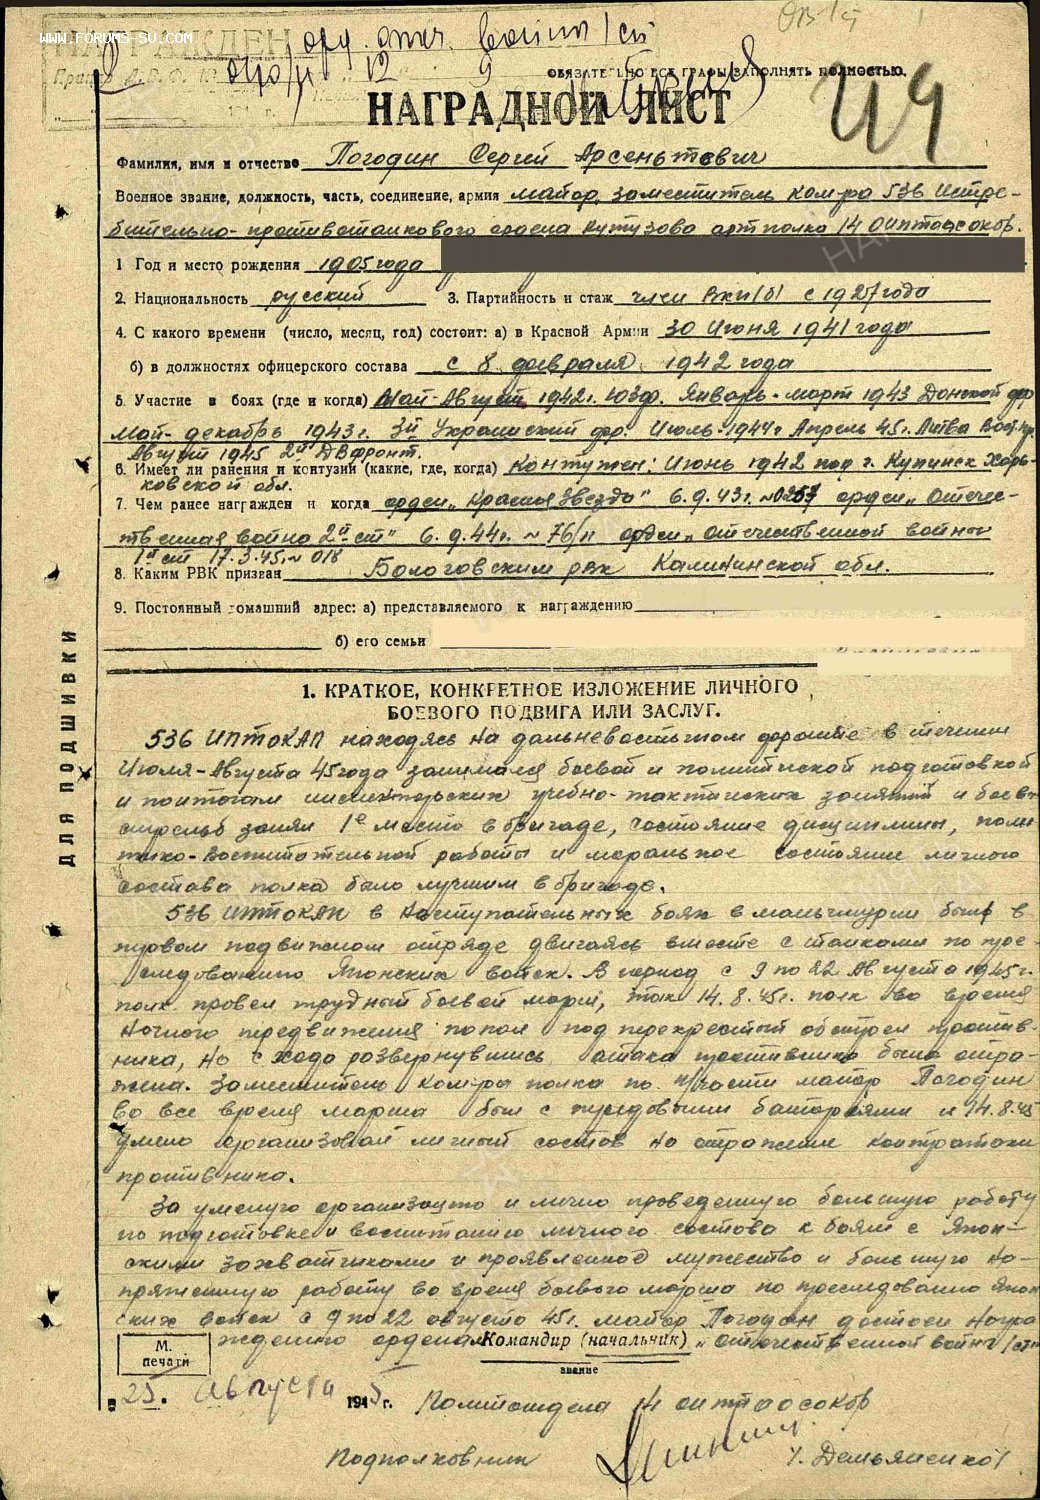 WWW.FORUMS-SU.COM
НАГРАЖДЕН
орд. отеч. войны I ст
ОБЯЗАТЕЛЬНО ВСЕ ГРАФЫ ЗАПОЛНЯТЬ ПОЛНОСТЬЮ.
НАГРАДНОЙ ЛИСТ
Фамилия, имя и отчество Погодин Сергей Арсеньтевич
Военное звание, должность, часть, соединение, армия майор, заместитель ком-ра 536 Истре-
бительно-противотанкового ордена Кутузова артполка 14 ОИПТАОСОКбр.
1 Год и место рождения 1905 года
2. Национальность русский 3. Партийность и стаж член ВКП(б) с 1927 года
4. С какого времени (число, месяц, год) состоит: а) в Красной Армии 30 Июня 1941 года
б) в должностях офицерского состава с 8 февраля 1942 года
5. Участие в боях (где и когда) Май-Август 1942г. ЮЗФ. Январь-март 1943 Донской фр
Май-декабрь 1943г. 3й Украинский фр. Июль-1944г Апрель 45г. Литва Вост.Пр.
Август 1945 2й ДВфронт.
6. Имеет ли ранения и контузии (какие, где, когда) Контужен: Июнь 1942 под г. Купинск Харь-
ковской обл.
7. Чем ранее награжден и когда орден „Красная Звезда" 6.9.43г. №0257 орден „Отече-
ственная война 2й ст" 6.9.44г. №76/н орден „отечественной войны
1й ст 17.3.45. № 018
8. Каким РВК призван Бологовским рвк Калининской обл.
9. Постоянный домашний адрес: а) представляемого к награждению
б) его семьи
ДЛЯ ПОДШИВКИ
1. КРАТКОЕ, КОНКРЕТНОЕ ИЗЛОЖЕНИЕ ЛИЧНОГО
БОЕВОГО ПОДВИГА ИЛИ ЗАСЛУГ.
536 ИПТОКАП находясь на дальневосточном фронте в течении
Июля-Августа 45 года занимался боевой и политической подготовкой
и поитогам инспекторских учебно-тактических занятий и боев.
стрельб занял 1е место в бригаде, состояние дисциплины, поли
тико-воспитательной работы и моральное состояние личного
состава полка было лучшим в бригаде.
536 ИПТОКАП в Наступательных боях в маньчжурии был в
первом подвижном отряде двигаясь вместе с танками по пре-
следованию Японских войск. В период с 9 по 22 Августа 1945г.
полк провел трудный боевой марш, так 14.8.45г. полк во время
Ночного передвижения попал под перекрестый обстрел против-
ника, но с хода развернувшись атака противника была отра-
жена. Заместитель ком-ра полка по п/части майор Погодин
во все время марша был с передовыми батареями и 14.8.45
умело организовал личный состав на отражение контратаки
противника.
За умелую организацию и лично проведенную большую работу
по подготовке и воспитанию личного состава к боям с Япон-
скими захватчиками и проявленное мужество и большую на-
пряженную работу во время боевого марша по преследованию Япон
ских войск с 9 по 22 августа 45г. майор Погодин достоен Награ
ждению орденом Командир (начальник) „отечественной войны I ст"
М.
печати
звание
"25. Августа 1945 г. Политотдела 14 оиптаосокбр
Подполковник /. Демьяненко/